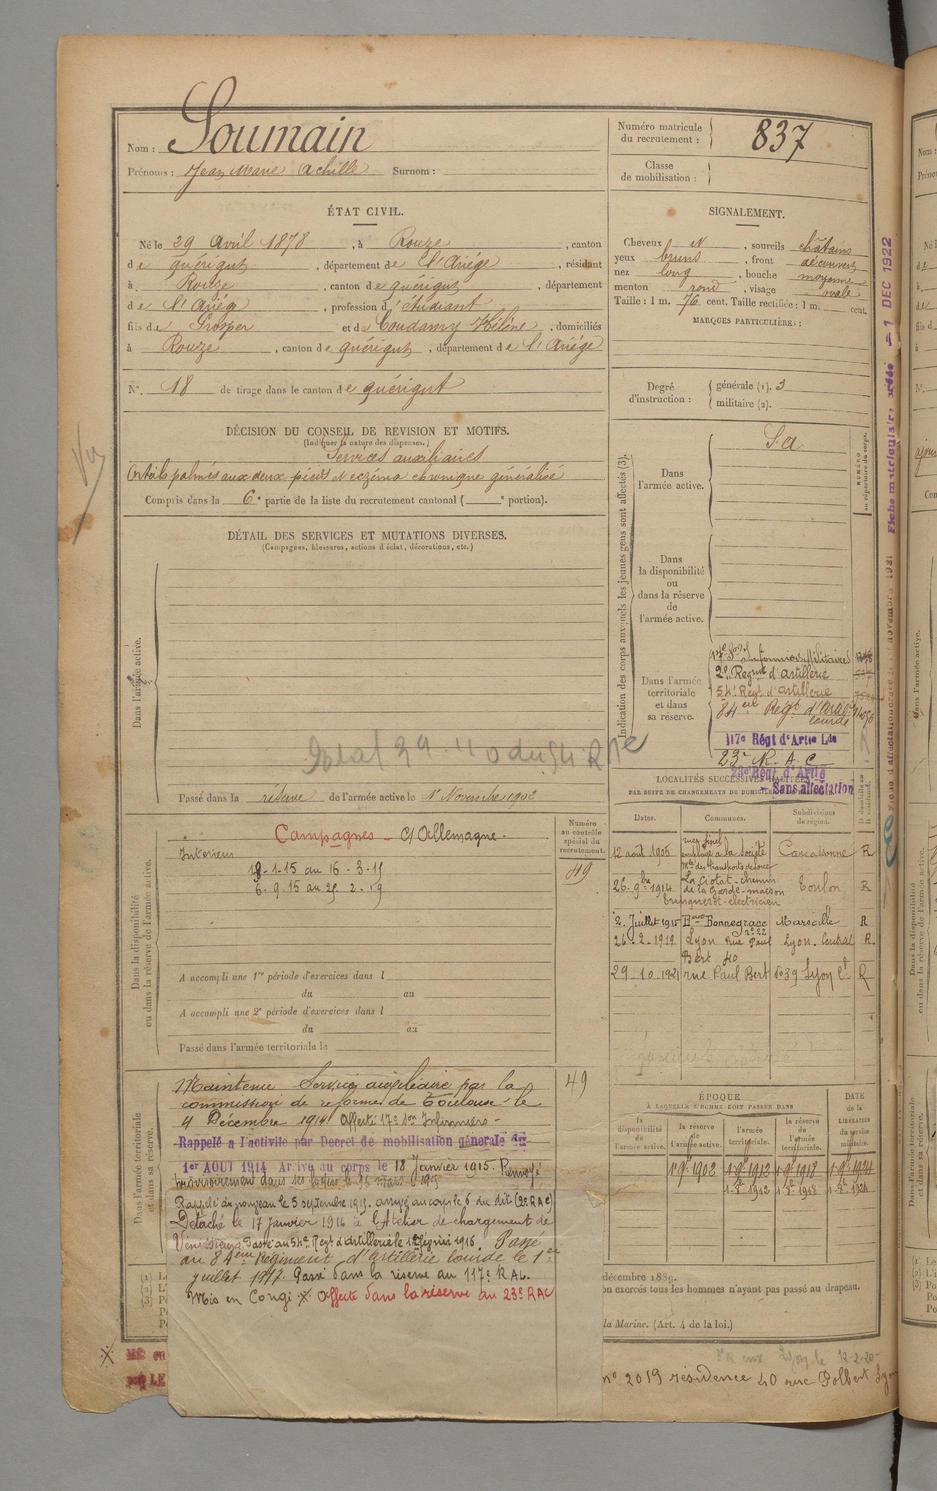 Nom : Soumain
Prénoms : Jean Marie Achille Surnom :
Numéro matricule
du recrutement : 837
Classe
de mobilisation :
ÉTAT CIVIL.
Né le 29 Avril 1878, à Rouze, canton
de quérigut, département de l'Ariége, résidant
à Rouze, canton de quérigut, département
de l'Ariég, profession d'étudiant
fils de Prosper et de Coudamy Hélène, domiciliés
à Rouze, canton de quérigut, département de l'Ariége
N°. 18 de tirage dans le canton de quérigut
SIGNALEMENT.
Cheveux et, sourcils châtains
yeux bruns, front découvert
nez long, bouche moyenne
menton rond, visage ovale
Taille : 1 m. 76 cent. Taille rectifiée : 1 m. cent.
MARQUES PARTICULIÈRES :
Degré
d'instruction :
générale (1). 3
militaire (2).
DÉCISION DU CONSEIL DE REVISION ET MOTIFS.
(Indiquer la nature des dispenses.)
Services auxiliaires
Orteils palmés aux deux pieds et eczéma chronique généralisé
Compris dans la 6e partie de la liste du recrutement cantonal ( e portion).
DÉTAIL DES SERVICES ET MUTATIONS DIVERSES.
(Campagnes, blessures, actions d'éclat, décorations, etc.)
Dans l'armée active.
Passé dans la réserve de l'armée active le 1er Novembre 1902
Indication des corps auxquels les jeunes gens sont affectés (3).
NUMÉRO
au répertoire du corps.
Dans
l'armée active.
S a
Dans
la disponibilité
ou
dans la réserve
de
l'armée active.
Dans l'armée
territoriale
et dans
sa réserve.
17e Son Infirmiers Militaires
2e Regt d'artillerie
54e Regt d'Artillerie
84eme Regt d'Artie lourde
117e Régt d'Artie Lde
23e R. A. C.
23e Régt d'Artie
Sans affectation
Fiche matriculaire
1 DEC 1922
LOCALITÉS SUCCESSIVES HABITÉES
PAR SUITE DE CHANGEMENTS DE DOMICILE
Dates.
Communes.
Subdivisions
de région.
12 août 1905 employé à la Société des transports Carcassonne R
26. 9bre 1914 La Ciotat - chemin de la Garde - maison électricien Toulon R
2. Juillet 1915 Bard Bonnegrace n° 22 Marseille R
26-2-1919 Lyon Rue Paul Bert 40 Lyon-Central R.
29-10-1921 rue Paul Bert 39 Lyon Cl R
Dans la disponibilité
ou dans la réserve de l'armée active.
Campagnes - C/ Allemagne.
Intérieur
18-1-15 au 16-3-15
6-9-15 au 25-2-19
Numéro
au contrôle
spécial du
recrutement.
49
A accompli une 1re période d'exercices dans l
du au
A accompli une 2e période d'exercices dans l
du au
Passé dans l'armée territoriale le
Dans l'armée territoriale
et dans sa réserve.
Maintenu Service auxiliaire par la
commission de réforme de Toulouse le
4 Décembre 1914 Affecté 17e Son Infirmiers -
Rappelé à l'activité par Decret de mobilisation générale du
1er AOUT 1914 Arrivé au corps le 18 Janvier 1915. Renvoyé
provisoirement dans ses foyers le 15 mars 1915
49
Rappelé à nouveau le 5 septembre 1915. arrivé au corps le 6 du dit (2e RAC)
Détaché le 17 janvier 1916 à l'Atelier de chargement de
Vénissieux. Passé au 54e Regt d'artillerie le 12 février 1916. Passé
au 84eme Régiment d'artillerie lourde le 1er
juillet 1917. Passé dans la réserve au 117e RAL.
Mis en Congé X Affecté dans la réserve au 23e RAC
ÉPOQUE
À LAQUELLE L'HOMME DOIT PASSER DANS
la
disponibilité
de
l'armée active.
la réserve
de
l'armée active.
l'armée
territoriale.
la réserve
de
l'armée
territoriale.
DATE
de la
LIBÉRATION
du service
militaire.
1. 9e 1902 1. 9e 1912 1. 9e 1918 1. 9e 1924
décembre 1889.
on exercés tous les hommes n'ayant pas passé au drapeau.
la Marine. (Art. 4 de la loi.)
Lyon le 12-2-20
n° 2019 résidence 40 rue Polbert Lyon